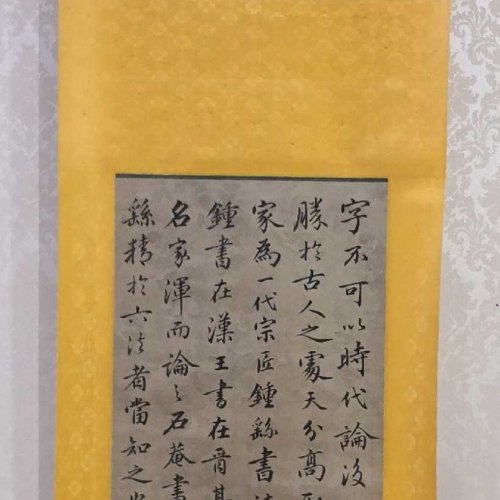 字不可以時代論後
勝於古人之處天分高
家為一代宗匠鍾繇書法
鍾書在漢王書在晉其
名家渾而論之石菴書
繇精於六法者當知之